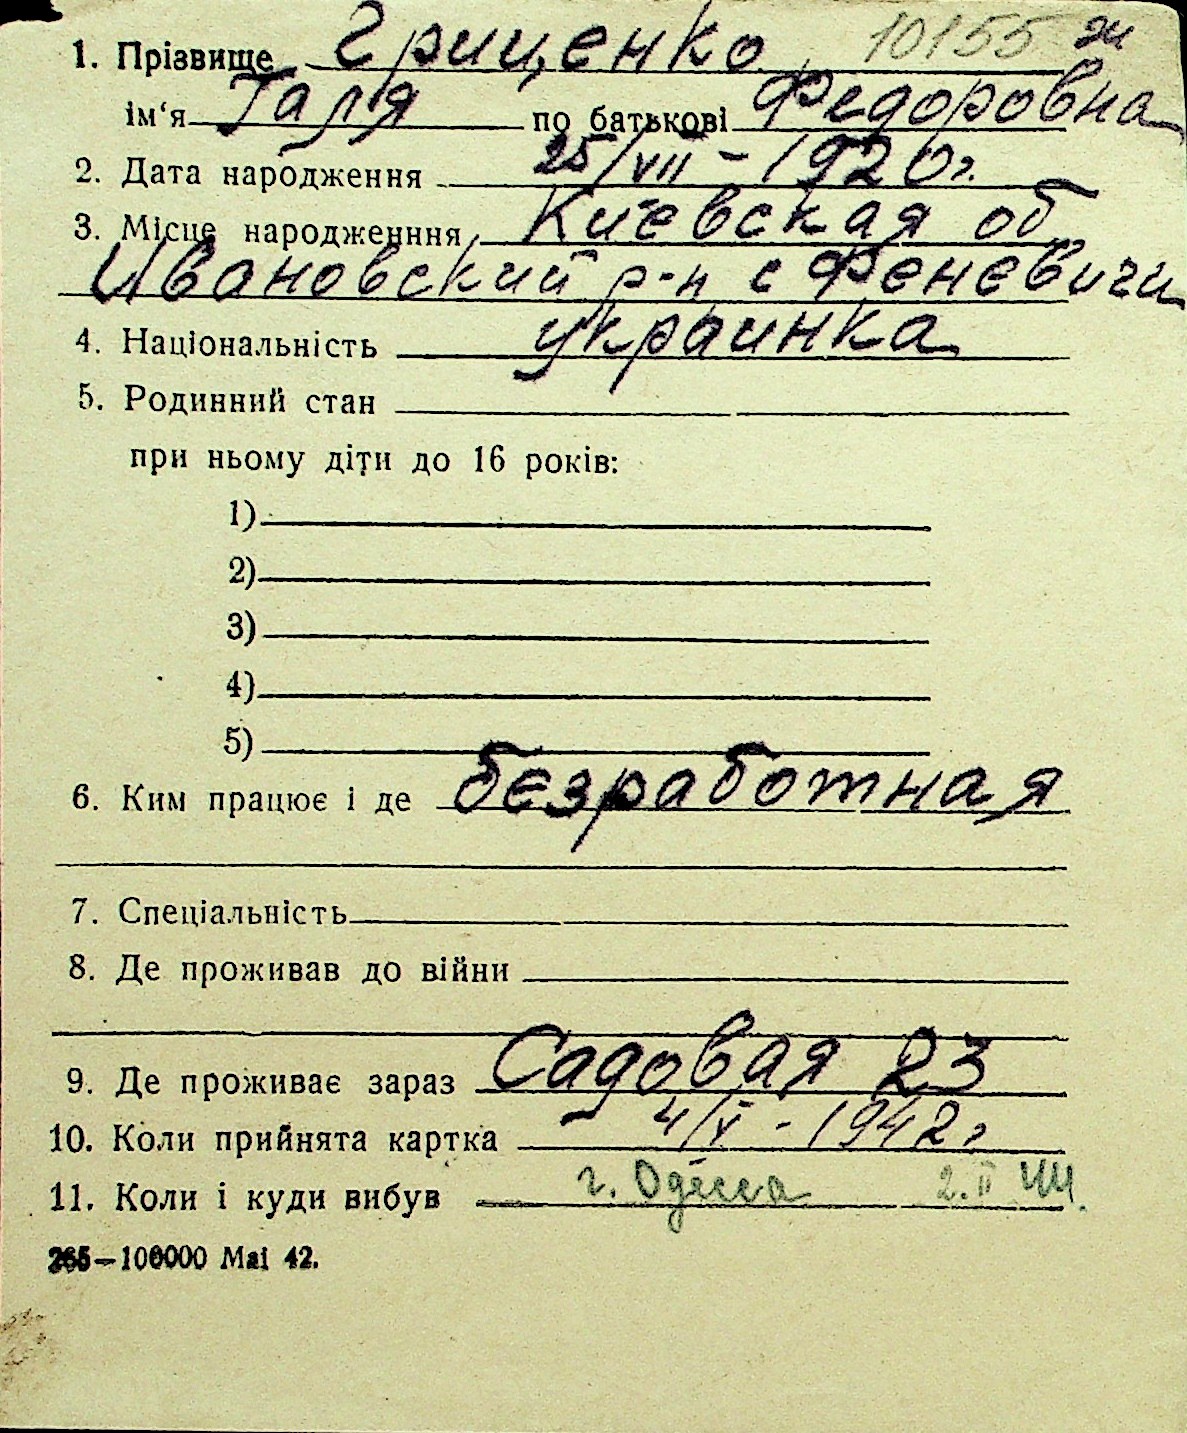 1. Прізвище Гриценко 10155 ж
ім‘я Галя по батькові Федоровна
2. Дата народження 25/VII – 1920 г.
3. Місце народженння Киевская об
Ивановский р-н с Феневичи
4. Національність украинка
5. Родинний стан
при ньому діти до 16 років:
1)
2)
3)
4)
5)
6. Ким працює і де безработная
7. Спеціальність
8. Де проживав до війни
9. Де проживає зараз Садовая 23
10. Коли прийнята картка 4/V - 1942 г
11. Коли і куди вибув г. Одесса 2.II 44.
265—100000 Mai 42.